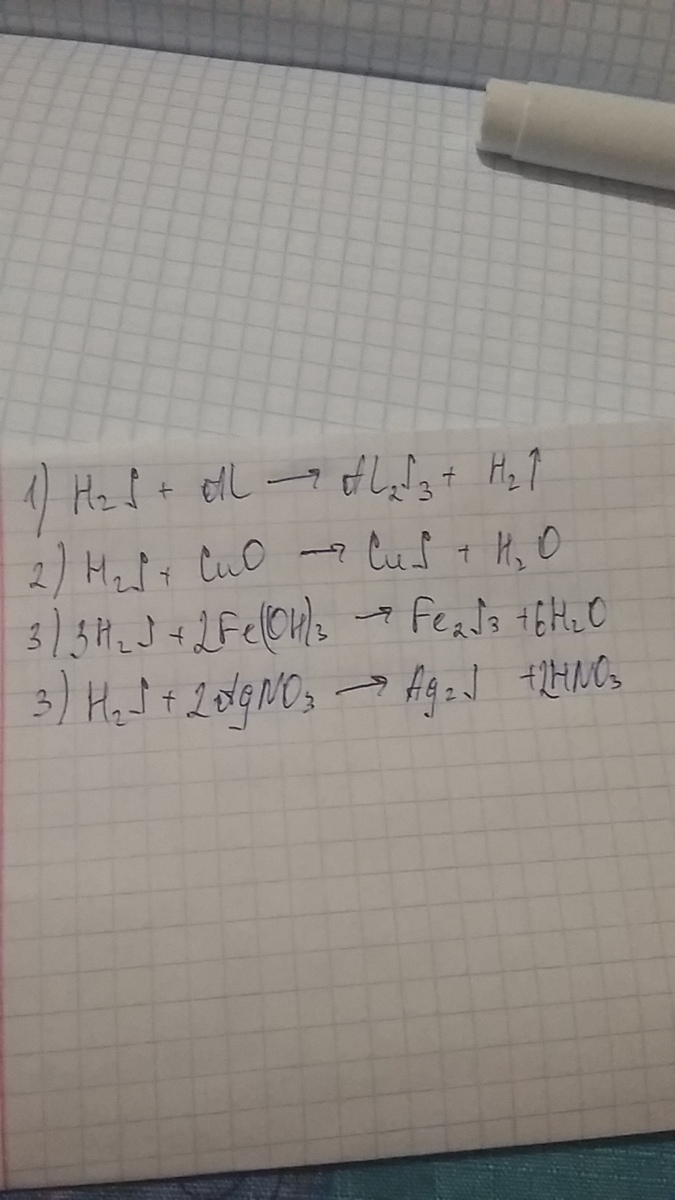 1) H₂S + Al → Al₂S₃ + H₂↑
2) H₂S + CuO → CuS + H₂O
3) 3H₂S + 2Fe(OH)₃ → Fe₂S₃ + 6H₂O
3) H₂S + 2AgNO₃ → Ag₂S + 2HNO₃